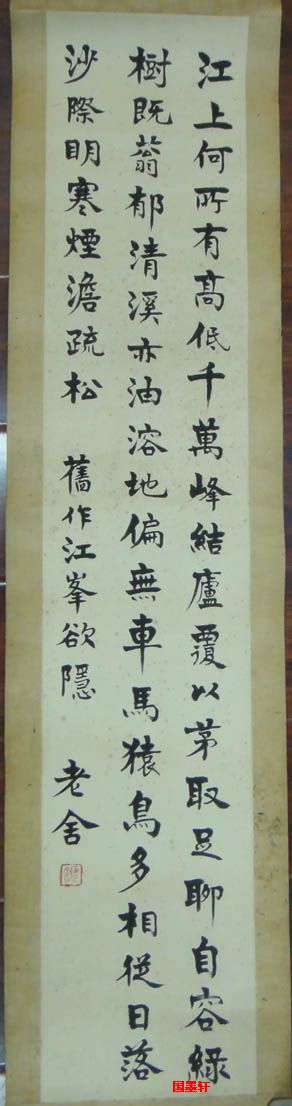 江上何所有高低千萬峰結廬覆以茅取足聊自容綠
樹既蓊郁清溪亦油溶地偏無車馬猿鳥多相從日落
沙際明寒煙澹疏松 舊作江峯欲隱 老舍
国墨轩